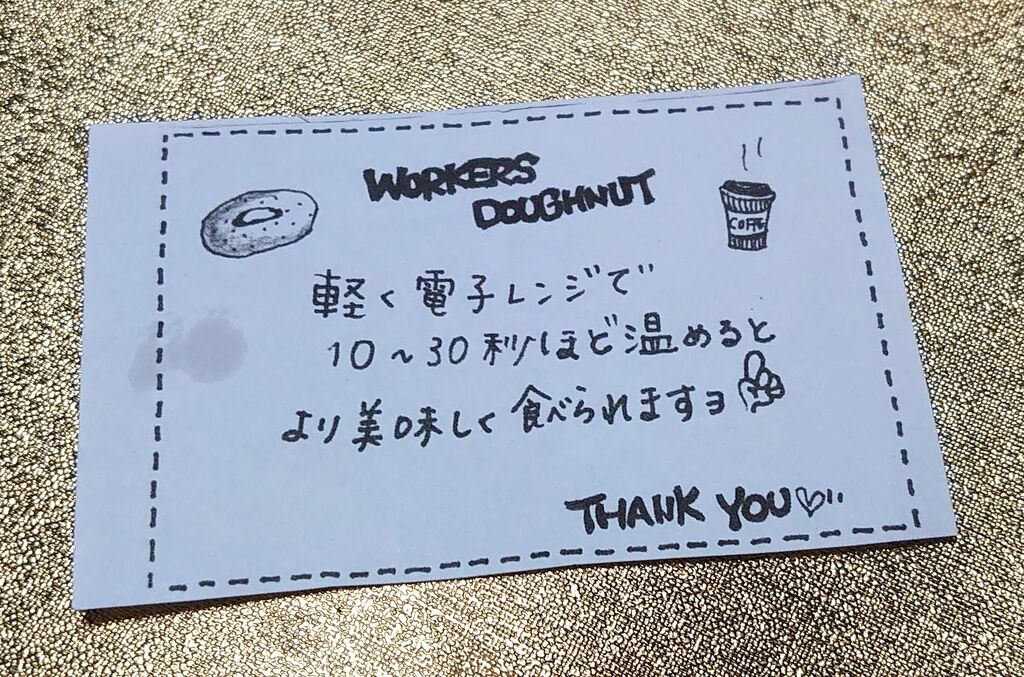 WORKERS
DOUGHNUT
COFFE
軽く電子レンジで
10～30秒ほど温めると
より美味しく食べられますヨ
THANK YOU♡